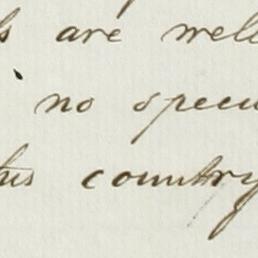 are well
no specu
this country